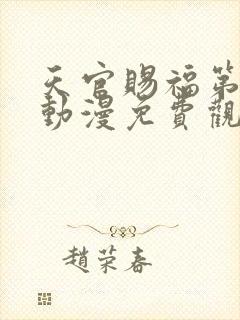 天官賜福第
動漫免費觀
趙荣春